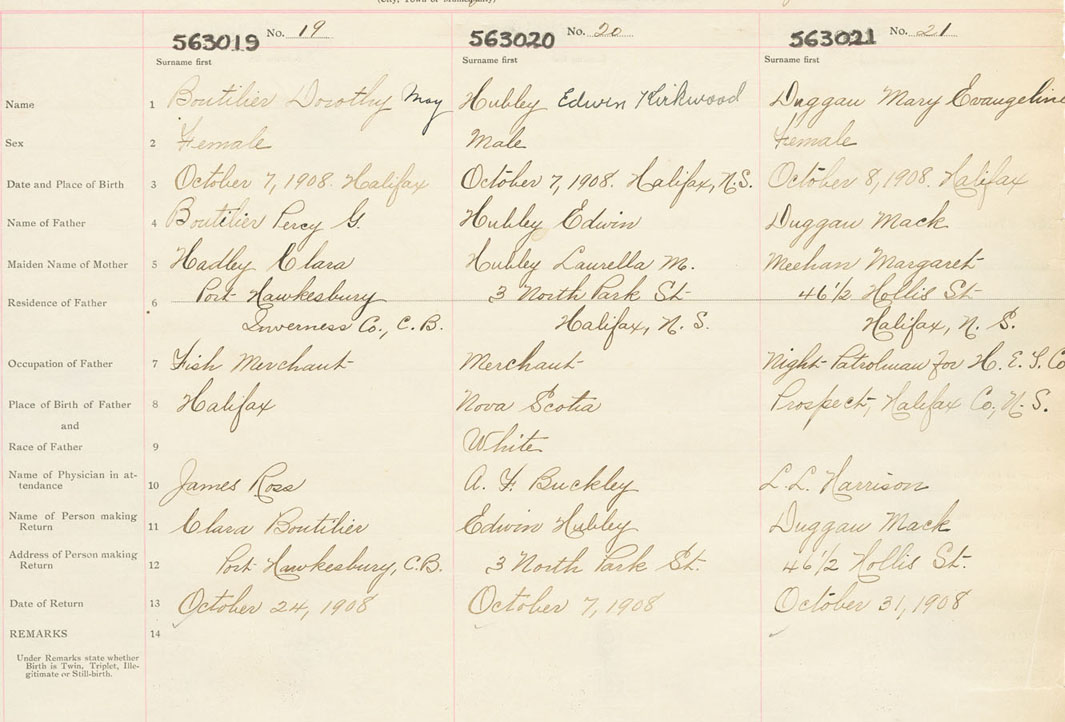 (City, Town or Municipality)
563019 No. 19 563020 No. 20 563021 No. 21
Surname first Surname first Surname first
Name 1 Boutilier Dorothy May Hubley Edwin Kirkwood Duggan Mary Evangeline
Sex 2 Female Male Female
Date and Place of Birth 3 October 7, 1908. Halifax October 7, 1908. Halifax, N.S. October 8, 1908. Halifax
Name of Father 4 Boutilier Percy G. Hubley Edwin Duggan Mack
Maiden Name of Mother 5 Hadley Clara Hubley Laurella M. Meehan Margaret
Residence of Father 6 Port Hawkesbury 3 North Park St 46 1/2 Hollis St
Inverness Co., C.B. Halifax, N.S. Halifax, N.S.
Occupation of Father 7 Fish Merchant Merchant Night Patrolman for H. E. T. Co
Place of Birth of Father 8 Halifax Nova Scotia Prospect, Halifax Co, N.S.
and
Race of Father 9 White
Name of Physician in at-
tendance 10 James Ross A. F. Buckley L. L. Harrison
Name of Person making
Return 11 Clara Boutilier Edwin Hubley Duggan Mack
Address of Person making
Return 12 Port Hawkesbury, C.B. 3 North Park St. 46 1/2 Hollis St.
Date of Return 13 October 24, 1908 October 7, 1908 October 31, 1908
REMARKS 14
Under Remarks state whether
Birth is Twin, Triplet, Ille-
gitimate or Still-birth.